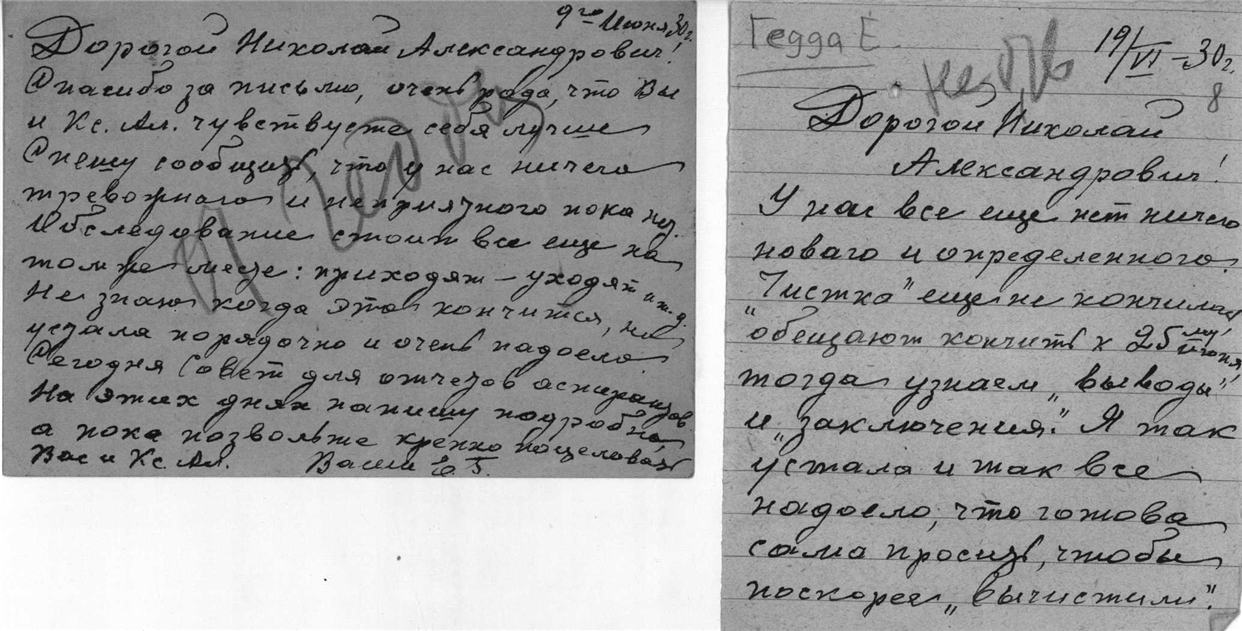 9го Июня 30 г.
Дорогой Николай Александрович!
Спасибо за письмо, очень рада, что Вы
и Кс. Ал. чувствуете себя лучше
Спешу сообщить, что у нас ничего
тревожного и неприязного пока нет.
Обследование стоит все еще на
том же месте: приходят – уходят и т.д.
Не знаю когда это кончится, но
устала порядочно и очень надоело.
Сегодня Совет для отчетов аспирантов.
На этих днях напишу подробно,
а пока позвольте крепко поцеловать
Вас и Кс. Ал. Ваша
Гедда Е.
19/VI – 30 г.
8
Дорогой Николай
Александрович!
У нас все еще нет ничего
новаго и определенного.
„Чистка" еще не кончилась
обещают кончить к 25му июня,
тогда узнаем „выводы"
и „заключения". Я так
устала и так все
надоело, что готова
сама просить, чтобы
поскорее „вычистили".